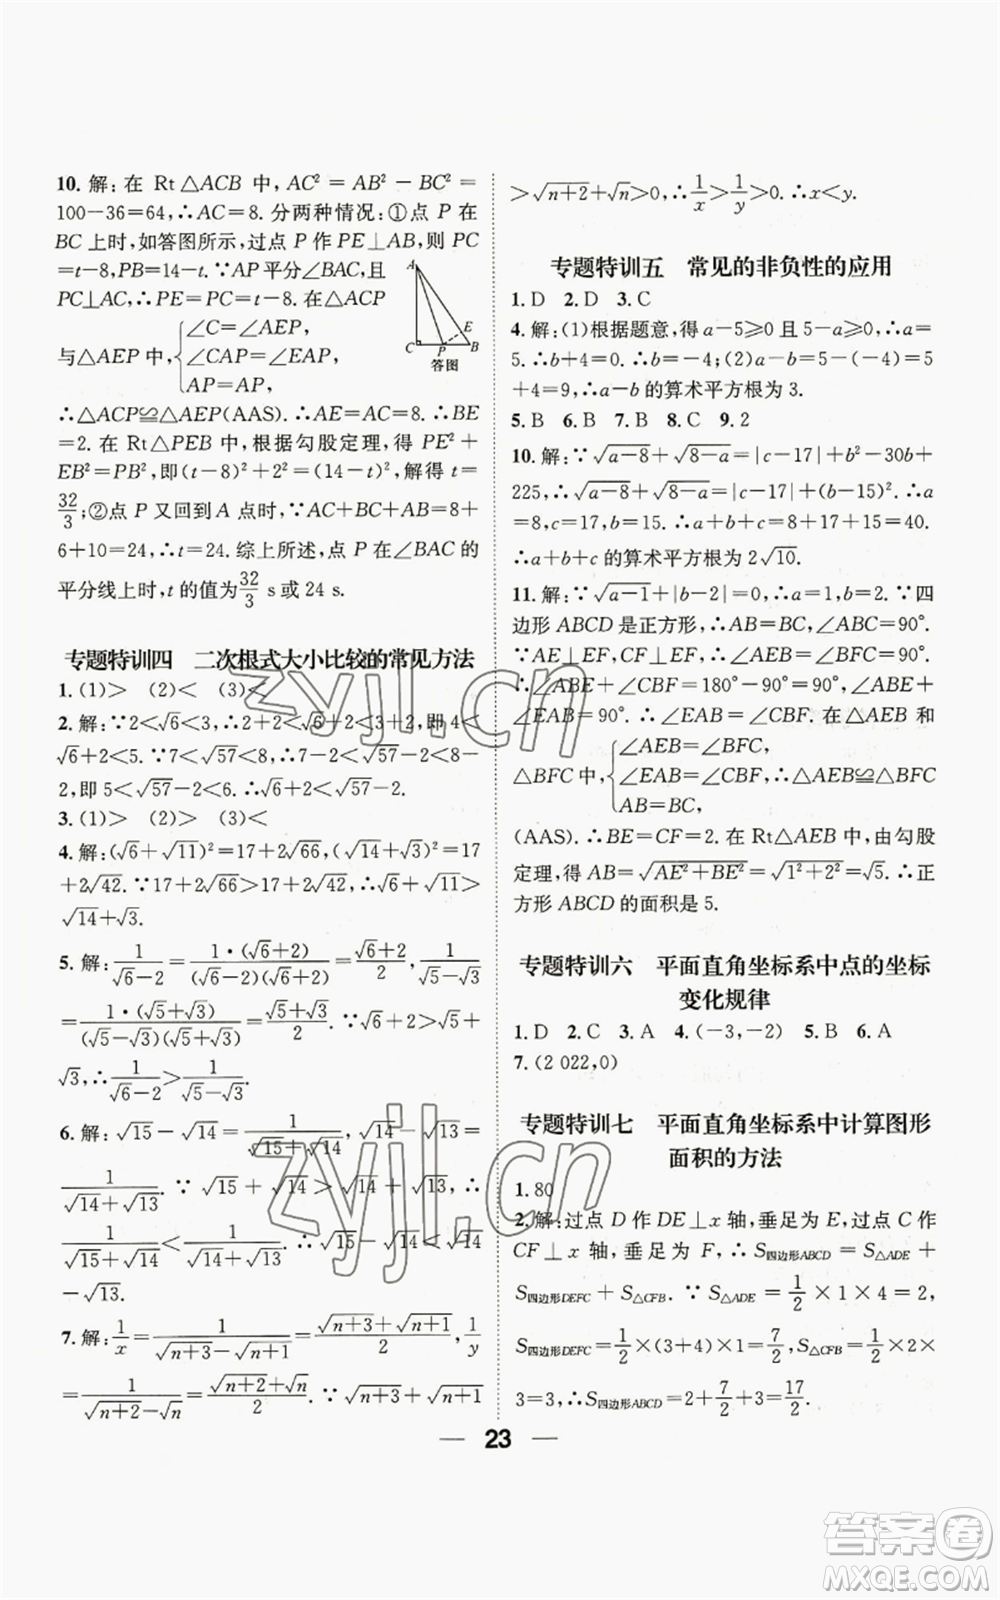 10. 解:在 Rt△ACB 中, AC² = AB² − BC² =
100−36=64,∴AC=8. 分两种情况:①点 P 在
BC 上时,如答图所示,过点 P 作 PE⊥AB,则 PC
=t−8,PB=14−t. ∵AP 平分∠BAC,且
PC⊥AC,∴PE=PC=t−8. 在△ACP
与△AEP 中,{∠C=∠AEP,
∠CAP=∠EAP,
AP=AP,
A
C
P
E
B
答图
∴△ACP≌△AEP(AAS). ∴AE=AC=8. ∴BE
=2. 在 Rt△PEB 中,根据勾股定理,得 PE²+
EB²=PB²,即(t−8)²+2²=(14−t)²,解得 t=
32/3;②点 P 又回到 A 点时,∵AC+BC+AB=8+
6+10=24,∴t=24. 综上所述,点 P 在∠BAC 的
平分线上时,t 的值为32/3 s或24 s.
专题特训四　二次根式大小比较的常见方法
1. (1)>　(2)<　(3)<
2. 解:∵2<√6<3,∴2+2<√6+2<3+2,即 4<
√6+2<5. ∵7<√57<8,∴7−2<√57−2<8−
2,即 5<√57−2<6.
3. (1)>　(2)>　(3)<
4. 解:(√6+√11)²=17+2√66,(√14+√3)²=17
+2√42. ∵17+2√66>17+2√42,∴√6+√11>
√14+√3.
5. 解:1/(√6−2)=1·(√6+2)/((√6−2)(√6+2))=(√6+2)/2,1/(√5−√3)
=1·(√5+√3)/((√5−√3)(√5+√3))=(√5+√3)/2. ∵√6+2>√5+
√3,∴1/(√6−2)>1/(√5−√3).
6. 解:√15−√14=1/(√15+√14),√14−√13=
1/(√14+√13). ∵√15+√14>√14+√13,∴
1/(√15+√14)<1/(√14+√13). ∴√15−√14<√14
−√13.
7. 解:1/x=1/(√(n+3)−√(n+1))=(√(n+3)+√(n+1))/2,1/y
=1/(√(n+2)−√n)=(√(n+2)+√n)/2. ∵√(n+3)+√(n+1)
>√(n+2)+√n>0,∴1/x>1/y>0. ∴x<y.
专题特训五　常见的非负性的应用
1. D　2. D　3. C
4. 解:(1)根据题意,得 a−5≥0 且 5−a≥0,∴a=
5. ∴b+4=0. ∴b=−4;(2)a−b=5−(−4)=5
+4=9,∴a−b 的算术平方根为 3.
5. B　6. B　7. B　8. C　9. 2
10. 解:∵√(a−8)+√(8−a)=|c−17|+b²−30b+
225,∴√(a−8)+√(8−a)=|c−17|+(b−15)². ∴a
=8,c=17,b=15. ∴a+b+c=8+17+15=40.
∴a+b+c 的算术平方根为 2√10.
11. 解:∵√(a−1)+|b−2|=0,∴a=1,b=2. ∵四
边形 ABCD 是正方形,∴AB=BC,∠ABC=90°.
∵AE⊥EF,CF⊥EF,∴∠AEB=∠BFC=90°.
∴∠ABE+∠CBF=180°−90°=90°,∠ABE+
∠EAB=90°. ∴∠EAB=∠CBF. 在△AEB 和
△BFC 中,{∠AEB=∠BFC,
∠EAB=∠CBF,∴△AEB≌△BFC
AB=BC,
(AAS). ∴BE=CF=2. 在 Rt△AEB 中,由勾股
定理,得 AB=√(AE²+BE²)=√(1²+2²)=√5. ∴正
方形 ABCD 的面积是 5.
专题特训六　平面直角坐标系中点的坐标
变化规律
1. D　2. C　3. A　4. (−3,−2)　5. B　6. A
7. (2 022,0)
专题特训七　平面直角坐标系中计算图形
面积的方法
1. 80
2. 解:过点 D 作 DE⊥x 轴,垂足为 E,过点 C 作
CF⊥x 轴,垂足为 F,∴S四边形ABCD=S△ADE+
S四边形DEFC+S△CFB. ∵S△ADE=1/2×1×4=2,
S四边形DEFC=1/2×(3+4)×1=7/2,S△CFB=1/2×2×
3=3,∴S四边形ABCD=2+7/2+3=17/2.
— 23 —
zyjl.cn
zyjl.cn
答案卷
MXQE.COM